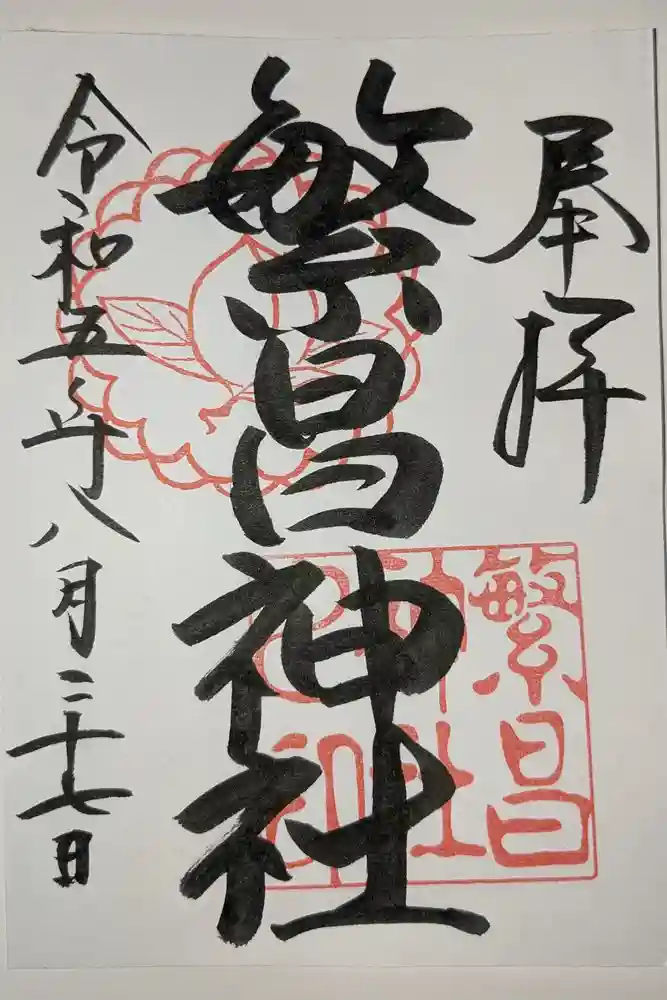 奉拝
繁昌神社
繁昌
神社
之印
令和五年八月二十七日